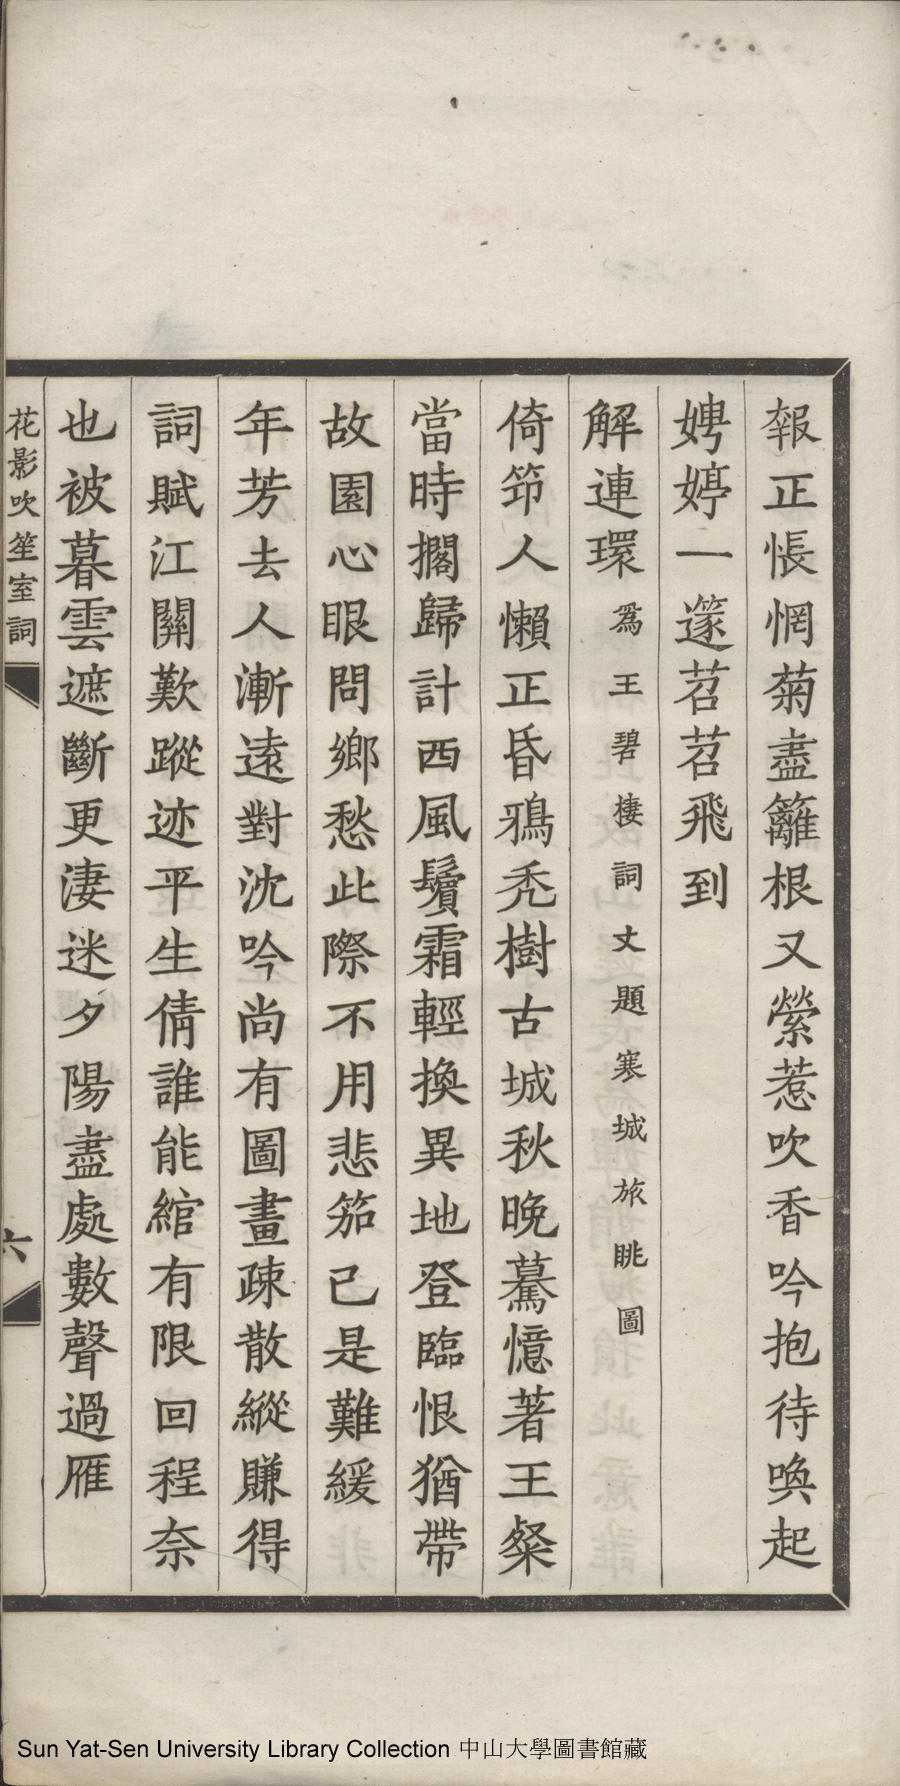 報正悵惘菊盡籬根又縈惹吹香吟抱待喚起
娉婷一篴苕苕飛到
解連環爲王碧棲詞丈題寒城旅眺圖
倚笻人懶正昏鴉禿樹古城秋晚驀憶著王粲
當時擱歸計西風鬢霜輕換異地登臨恨猶帶
故園心眼問鄉愁此際不用悲笳已是難緩
年芳去人漸遠對沈吟尚有圖畫疎散縱賺得
詞賦江關歎蹤迹平生倩誰能綰有限回程奈
也被暮雲遮斷更淒迷夕陽盡處數聲過雁
花影吹笙室詞
六
Sun Yat-Sen University Library Collection 中山大學圖書館藏